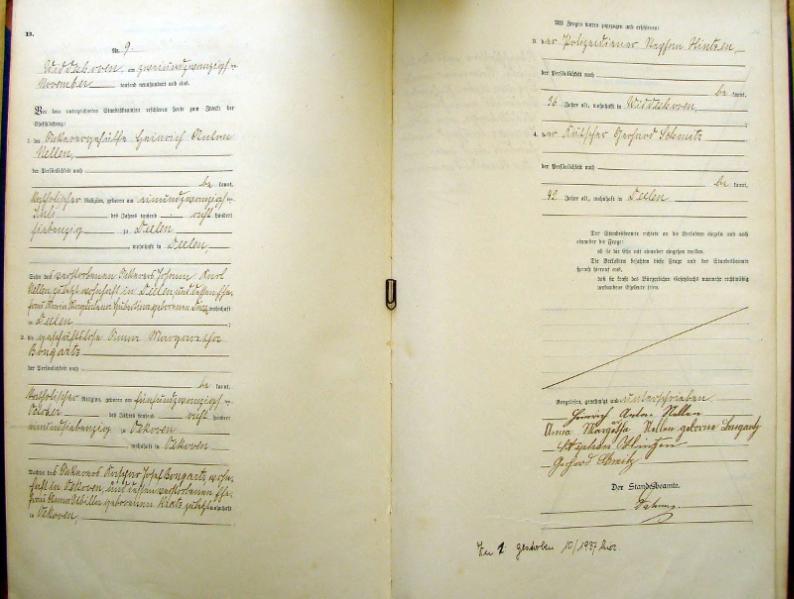 B.
Nr. 9.
Widdeshoven, am zweiundzwanzigsten
November tausend neunhundert und eins.
Vor dem unterzeichneten Standesbeamten erschienen heute zum Zwecke der
Eheschließung:
1. der Ackergehülfe Heinrich Anton
Nellen,
der Persönlichkeit nach
be kannt,
katholischer Religion, geboren am einundzwanzigsten
Juli des Jahres tausend acht hundert
siebenzig zu Deelen
, wohnhaft in Deelen,
Sohn des verstorbenen Ackerers Johann Karl
Nellen zuletzt wohnhaft in Deelen, und dessen Ehe-
frau Maria Magdalena Hubertina geborenen wohnhaft
in Deelen ;
2. die geschäftslose Anna Margaretha
Bongartz
der Persönlichkeit nach
be kannt,
katholischer Religion, geboren am fünfundzwanzigsten
October des Jahres tausend acht hundert
einundsiebenzig zu Oekoven
, wohnhaft in Oekoven
Tochter des Ackerers Josef Bongartz, wohn-
haft in Oekoven, und dessen verstorbenen Ehe-
frau Anna Sibilla geborenen zuletzt wohnhaft
in Oekoven,
Als Zeugen waren zugezogen und erschienen:
3. der Polizeidiener Hintzen,
der Persönlichkeit nach
be kannt,
36 Jahre alt, wohnhaft in Widdeshoven,
4. der Kutscher Gerhard Schmitz
der Persönlichkeit nach
be kannt,
42 Jahre alt, wohnhaft in Deelen
Der Standesbeamte richtete an die Verlobten einzeln und nach
einander die Frage:
ob sie die Ehe mit einander eingehen wollen.
Die Verlobten bejahten diese Frage und der Standesbeamte
sprach hierauf aus,
daß sie kraft des Bürgerlichen Gesetzbuchs nunmehr rechtmäßig
verbundene Eheleute seien.
Vorgelesen, genehmigt und unterschrieben
Heinrich Anton Nellen
Anna Margretha Nellen geborne Bongartz
Hintzen
Gerhard Schmitz
Der Standesbeamte.
Zu 1: gestorben 10/1937